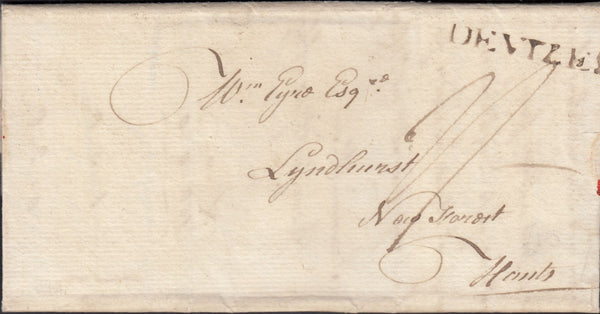 DEVIZES
Wm Eyre Esqre
Lyndhurst
New Forest
Hants